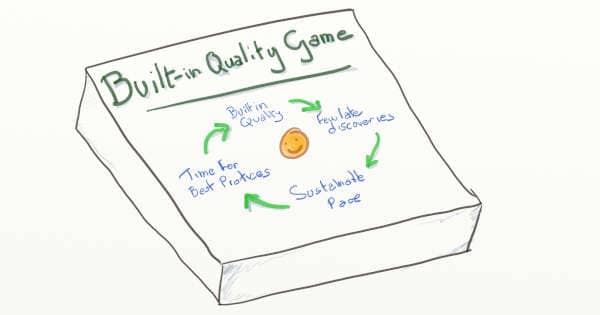 Built-in Quality Game
Built in
Quality
Few late
discoveries
Sustainable
Pace
Time For
Best Practices